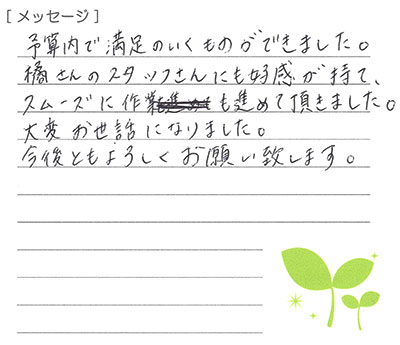 [メッセージ]
予算内で満足のいくものができました。
橘さんのスタッフさんにも好感が持て、
スムーズに作業も進めて頂きました。
大変お世話になりました。
今後ともよろしくお願い致します。